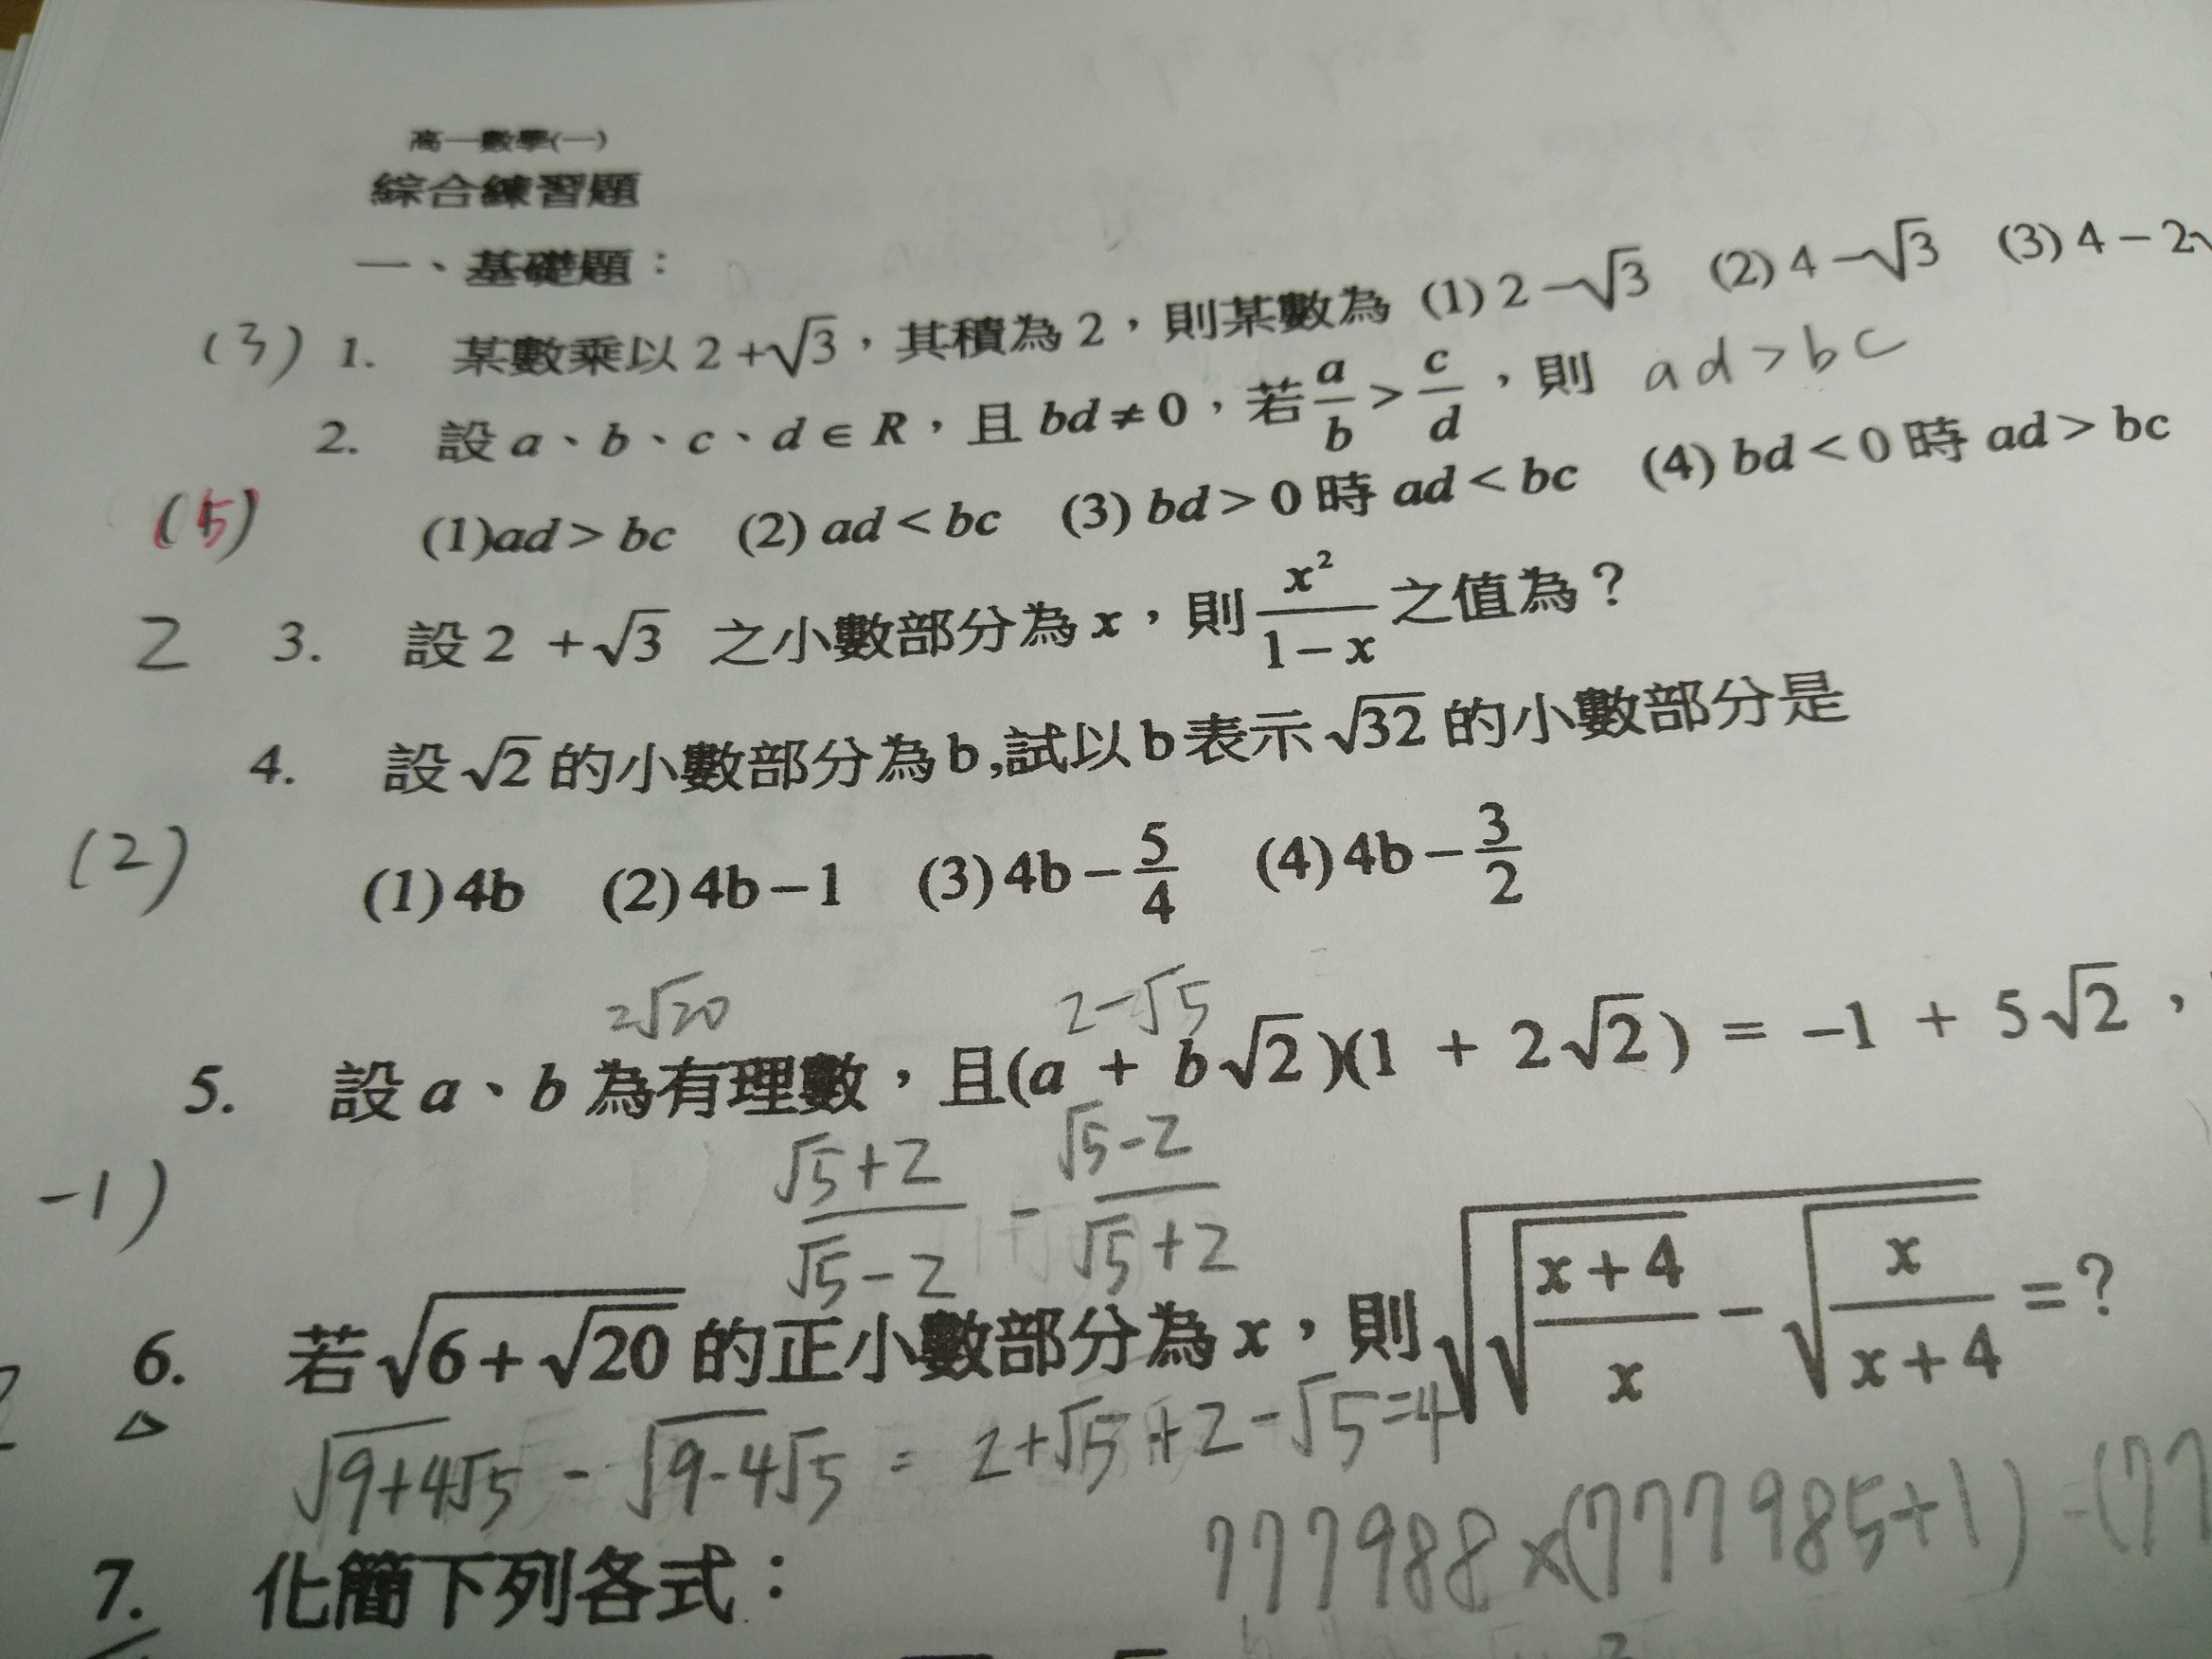 高一數學(一)
綜合練習題
一、基礎題：
(3) 1. 某數乘以 2+√3，其積為 2，則某數為 (1) 2-√3 (2) 4-√3 (3) 4-2√
2. 設 a、b、c、d∈R，且 bd≠0，若 a/b > c/d，則 ad>bc
(5) (1)ad>bc (2) ad<bc (3) bd>0 時 ad<bc (4) bd<0 時 ad>bc
2 3. 設 2 +√3 之小數部分為 x，則 x²/(1-x) 之值為？
4. 設 √2 的小數部分為 b,試以 b 表示 √32 的小數部分是
(2) (1) 4b (2) 4b-1 (3) 4b-5/4 (4) 4b-3/2
2√20 2-√5
5. 設 a、b 為有理數，且(a + b√2)(1 + 2√2) = -1 + 5√2，
-1) (√5+2)/(√5-2) - (√5-2)/(√5+2)
6. 若 √(6+√20) 的正小數部分為 x，則 √(√((x+4)/x) - √(x/(x+4))) =?
△ √9+4√5 - √9-4√5 = 2+√5+2-√5=4
777988×(777985+1)=(77
7. 化簡下列各式：